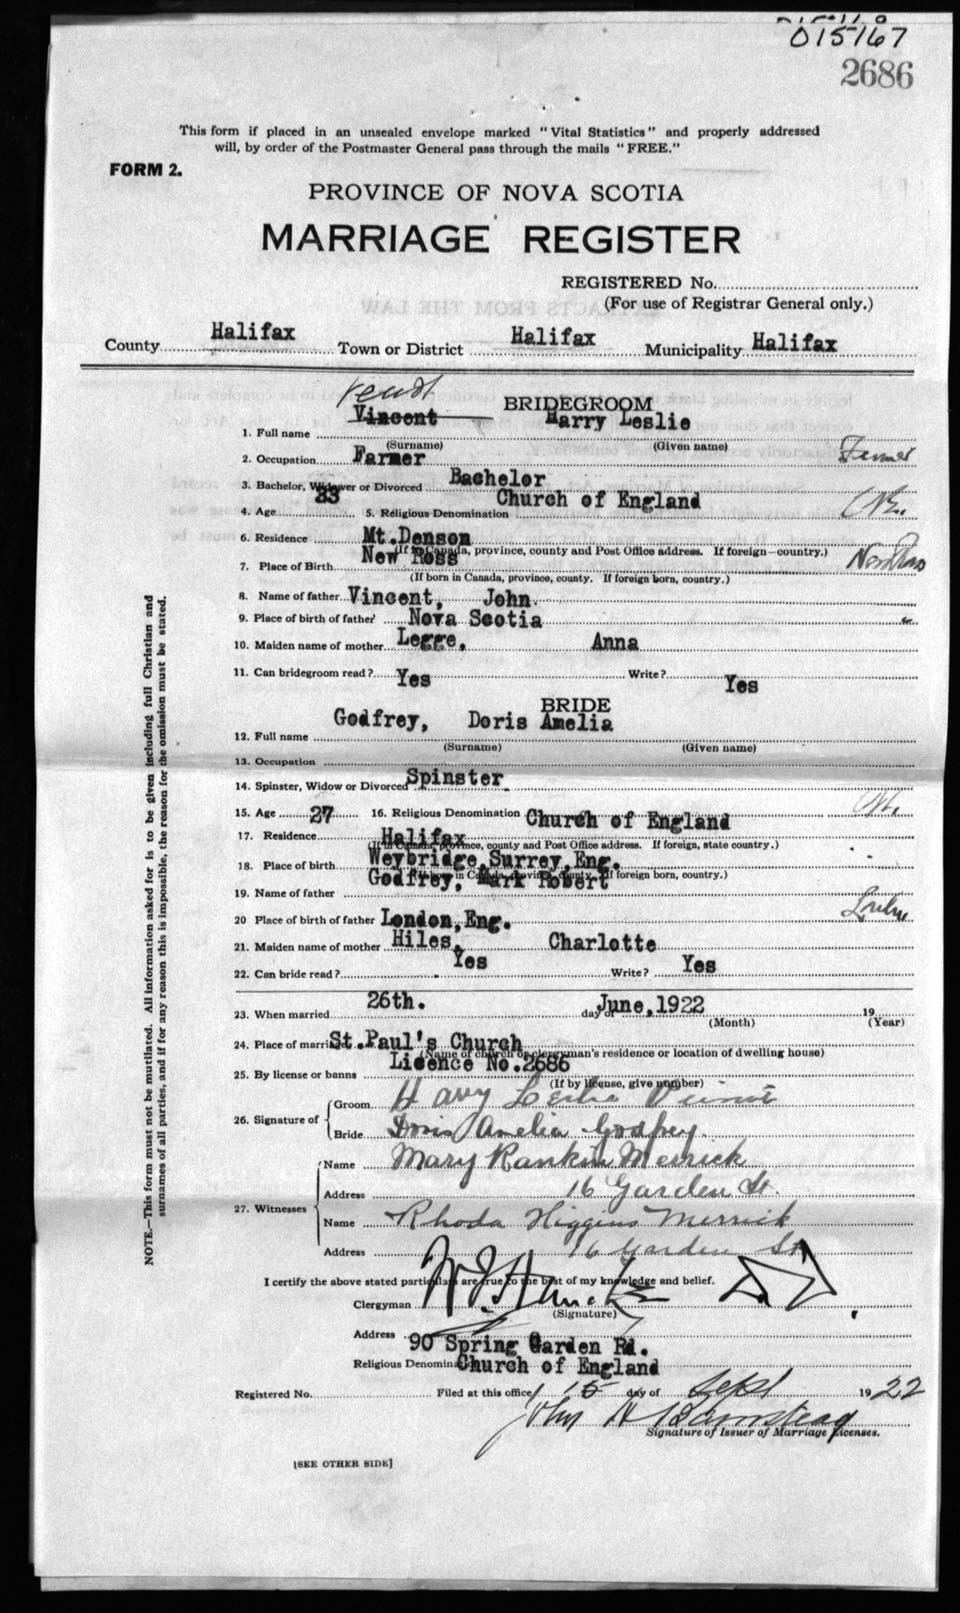 015167
2686
This form if placed in an unsealed envelope marked "Vital Statistics" and properly addressed
will, by order of the Postmaster General pass through the mails "FREE."
FORM 2.
PROVINCE OF NOVA SCOTIA
MARRIAGE REGISTER
REGISTERED No.
(For use of Registrar General only.)
County Halifax Town or District Halifax Municipality Halifax
BRIDEGROOM
1. Full name Vincent Harry Leslie
(Surname) (Given name)
2. Occupation Farmer
3. Bachelor, Widower or Divorced Bachelor
4. Age 33 5. Religious Denomination Church of England
6. Residence Mt.Denson
(If in Canada, province, county and Post Office address. If foreign—country.)
7. Place of Birth New Ross
(If born in Canada, province, county. If foreign born, country.)
8. Name of father Vincent, John
9. Place of birth of father Nova Scotia
10. Maiden name of mother Legge, Anna
11. Can bridegroom read? Yes Write? Yes
BRIDE
12. Full name Godfrey, Doris Amelia
(Surname) (Given name)
13. Occupation
14. Spinster, Widow or Divorced Spinster
15. Age 27 16. Religious Denomination Church of England
17. Residence Halifax
(If in Canada, province, county and Post Office address. If foreign, state country.)
18. Place of birth Weybridge,Surrey,Eng.
(If born in Canada, province, county. If foreign born, country.)
19. Name of father Godfrey, Mark Robert
20 Place of birth of father London,Eng.
21. Maiden name of mother Hiles, Charlotte
22. Can bride read? Yes Write? Yes
23. When married 26th. day of June,1922 19
(Month) (Year)
24. Place of marriage St.Paul's Church
(Name of church or clergyman's residence or location of dwelling house)
25. By license or banns Licence No.2686
(If by license, give number)
26. Signature of Groom Harry Leslie
Bride Doris Amelia Godfrey
27. Witnesses Name Mary Rankin Merrick
Address 16 Garden St.
Name Rhoda Higgins Merrick
Address 16 Garden St
I certify the above stated particulars are true to the best of my knowledge and belief.
Clergyman
(Signature)
Address 90 Spring Garden Rd.
Religious Denomination Church of England
Registered No. Filed at this office 15 day of Sept 1922
John H Barnstead
Signature of Issuer of Marriage Licenses.
[SEE OTHER SIDE]
NOTE.—This form must not be mutilated. All information asked for is to be given including full Christian and
surnames of all parties, and if for any reason this is impossible, the reason for the omission must be stated.